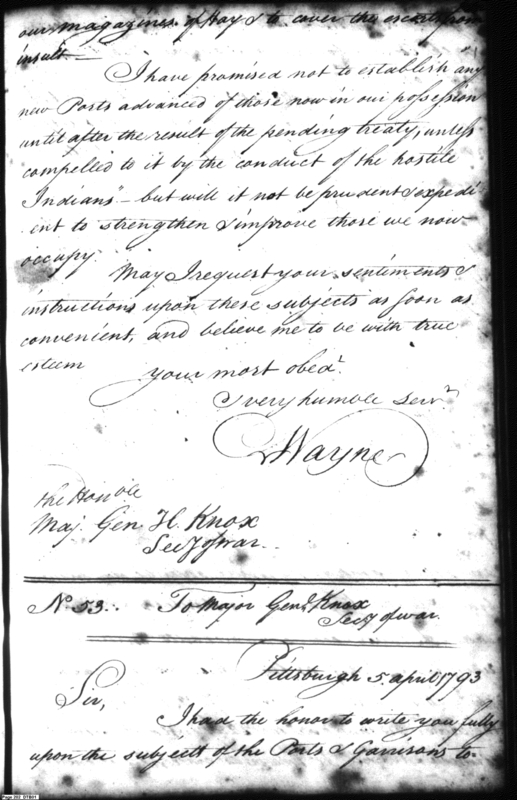 our magazines of Hay & to cover the escorts from
insult.—
I have promised not to establish any
new Posts advanced of those now in our possession
until after the result of the pending treaty, unless
compelled to it by the conduct of the hostile
Indians"— but will it not be prudent & expedi
ent to strengthen & improve those we now
occupy.
May I request your sentiments &
instructions upon these subjects as soon as
convenient, and believe me to be with true
esteem
your most obedt.
& very humble Servt.
Wayne
the Honble
Maj. Gen H. Knox
Secy of war.
No 53.. To Major Genl. Knox
Secy of war.
Pittsburgh 5 april 1793
Sir,
I had the honor to write you fully
upon the subject of the Posts & Garrisons to